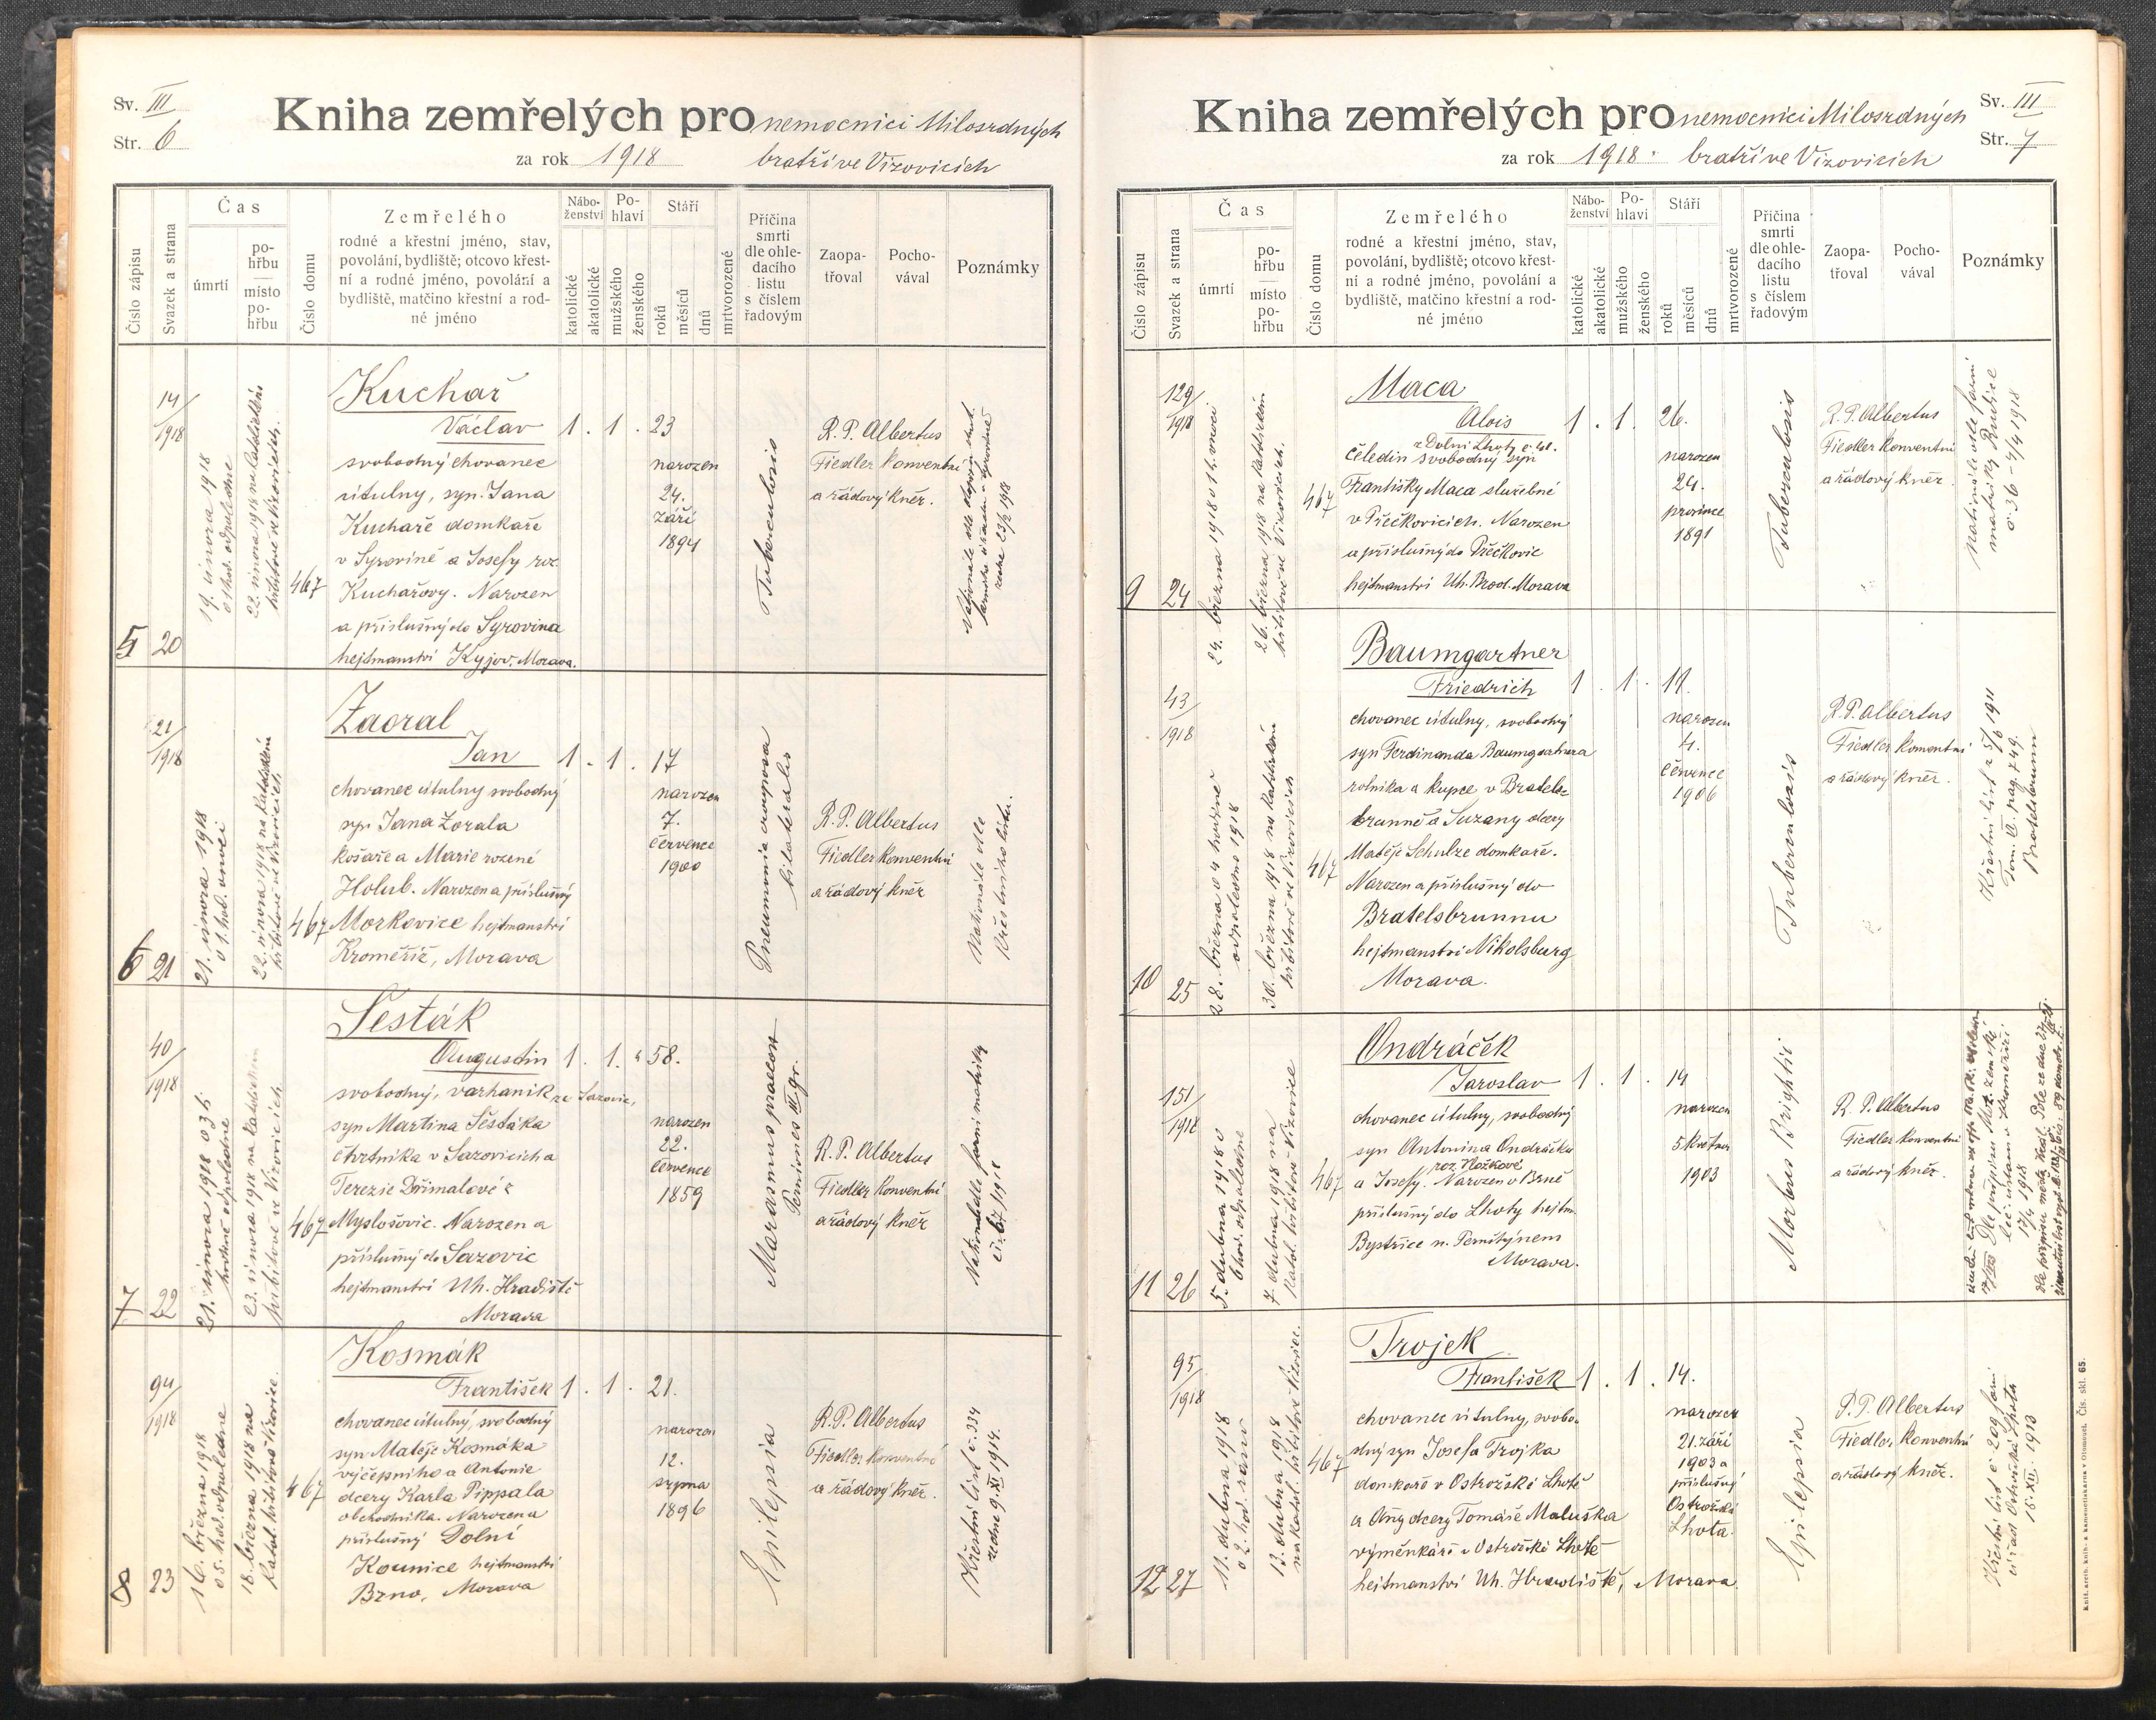 Sv. III
Str. 6
Kniha zemřelých pro nemocnici Milosrdných
za rok 1918 bratří ve Vizovicích
Číslo zápisu
Svazek a strana
Čas
úmrtí
po-
hřbu
místo
po-
hřbu
Číslo domu
Zemřelého
rodné a křestní jméno, stav,
povolání, bydliště; otcovo křest-
ní a rodné jméno, povolání a
bydliště, matčino křestní a rod-
né jméno
Nábo-
ženství
katolické
akatolické
Po-
hlaví
mužského
ženského
Stáří
roků
měsíců
dnů
mrtvorozené
Příčina
smrti
dle ohle-
dacího
listu
s číslem
řadovým
Zaopa-
třoval
Pocho-
vával
Poznámky
5
20
14/1918
19. února 1918
22. února 1918 na katolickém
hřbitově ve Vizovicích.
467
Kuchař
Václav
svobodný chovanec
útulny, syn Jana
Kuchaře domkaře
v Syrovíně a Josefy roz.
Kuchařovy. Narozen
a příslušný do Syrovína
hejtmanství Kyjov, Morava.
1. 1. 23
narozen
24.
září
1894
Tuberculosis
R. P. Albertus
Fiedler konventní
a řádový kněz.
6
21
21/1918
21. února 1918
22. února 1918 na katolickém
hřbitově ve Vizovicích
467
Zaoral
Jan
chovanec útulny svobodný
syn Jana Zorala
košaře a Marie rozené
Holub. Narozen a příslušný
Morkovice hejtmanství
Kroměříž, Morava
1. 1. 17
narozen
7.
července
1900
Pneumonia crouposa
bilateralis
R. P. Albertus
Fiedler konventní
a řádový kněz
Nationále dle
křestního listu.
7
22
40/1918
21. února 1918 o 3 h.
23. února 1918 na katolickém
hřbitově ve Vizovicích
467
Šesták
Augustin
svobodný, varhaník ze Sazovic,
syn Martina Šestáka
čtvrtníka v Sazovicích a
Terezie Dřímalové z
Myslošovic. Narozen a
příslušný do Sazovic
hejtmanství Uh. Hradiště
Morava
1. 1. 58.
narozen
22.
července
1859
Marasmus praecox
R. P. Albertus
Fiedler konventní
a řádový kněz
Nationále dle farní matriky
8
23
94/1918
16. března 1918
o 5. hod. odpoledne
18. března 1918 na
katol. hřbitově Vizovice.
467
Kosmák
František
chovanec útulny, svobodný
syn Matěje Kosmáka
výčepního a Antonie
dcery Karla Pippala
obchodníka. Narozen a
příslušný Dolní
Kounice hejtmanství
Brno, Morava
1. 1. 21.
narozen
12.
srpna
1896
Epilepsia
R. P. Albertus
Fiedler konventní
a řádový kněz.
Křestní list č. 334
ze dne 9. XI. 1914.
Sv. III
Str. 7
Kniha zemřelých pro nemocnici Milosrdných
za rok 1918. bratří ve Vizovicích
Číslo zápisu
Svazek a strana
Čas
úmrtí
po-
hřbu
místo
po-
hřbu
Číslo domu
Zemřelého
rodné a křestní jméno, stav,
povolání, bydliště; otcovo křest-
ní a rodné jméno, povolání a
bydliště, matčino křestní a rod-
né jméno
Nábo-
ženství
katolické
akatolické
Po-
hlaví
mužského
ženského
Stáří
roků
měsíců
dnů
mrtvorozené
Příčina
smrti
dle ohle-
dacího
listu
s číslem
řadovým
Zaopa-
třoval
Pocho-
vával
Poznámky
9
24
129/1918
24. března 1918 o 1 h. v noci
26. března 1918 na katolickém
hřbitově ve Vizovicích.
467
Maca
Alois
z Dolní Lhoty
čeledín svobodný syn
Františky Maca služebné
v Přečkovicích. Narozen
a příslušný do Přečkovic
hejtmanství Uh. Brod. Morava
1. 1. 26.
narozen
24.
prosince
1891
Tuberculosis
R. P. Albertus
Fiedler konventní
a řádový kněz.
nationále dle farní
matriky Rudice
č. 36 - 4/4 1918
10
25
43/1918
28. března o 4 hodině
odpoledne 1918
30. března 1918 na katolickém
hřbitově ve Vizovicích
467
Baumgartner
Friedrich
chovanec útulny, svobodný
syn Ferdinanda Baumgartnera
rolníka a kupce v Bratels-
brunně a Suzany dcery
Matěje Schulze domkaře.
Narozen a příslušný do
Bratelsbrunnu
hejtmanství Nikolsburg
Morava.
1. 1. 11.
narozen
4.
července
1906
Tuberculosis
R. P. Albertus
Fiedler konventní
a řádový kněz.
Křestní list z 5/6 1911
Tom. VI. pag. 749.
Bratelsbrunn
11
26
151/1918
5. dubna 1918 o
6 hod. odpoledne
7. dubna 1918 na
katol. hřbitově Vizovice
467
Ondráček
Jaroslav
chovanec útulny, svobodný
syn Antonína Ondráčka
roz. Nožkové
a Josefy. Narozen v Brně
příslušný do Lhoty hejtm.
Bystřice n. Pernštýnem
Morava.
1. 1. 14
narozen
5 května
1903
Morbus Brightii
R. P. Albertus
Fiedler konventní
a řádový kněz.
17/4 1918
12
27
95/1918
11. dubna 1918
o 2 hod. ráno
13. dubna 1918
na katol. hřbitově Vizovice.
467
Trojek
František
chovanec útulny, svobo-
dný syn Josefa Trojka
domkaře v Ostrožské Lhotě
a Anny dcery Tomáše Maluška
výměnkáře v Ostrožské Lhotě
hejtmanství Uh. Hradiště, Morava.
1. 1. 14.
narozen
21. září
1903 a
příslušný
Ostrožská
Lhota.
Epilepsia
R. P. Albertus
Fiedler konventní
a řádový kněz.
Křestní list č. 209 farní
úřad Ostrožská Lhota
15. XII. 1913
Kniž. arcib. knih- a kamenotiskarna v Olomouci. Čís. skl. 65.